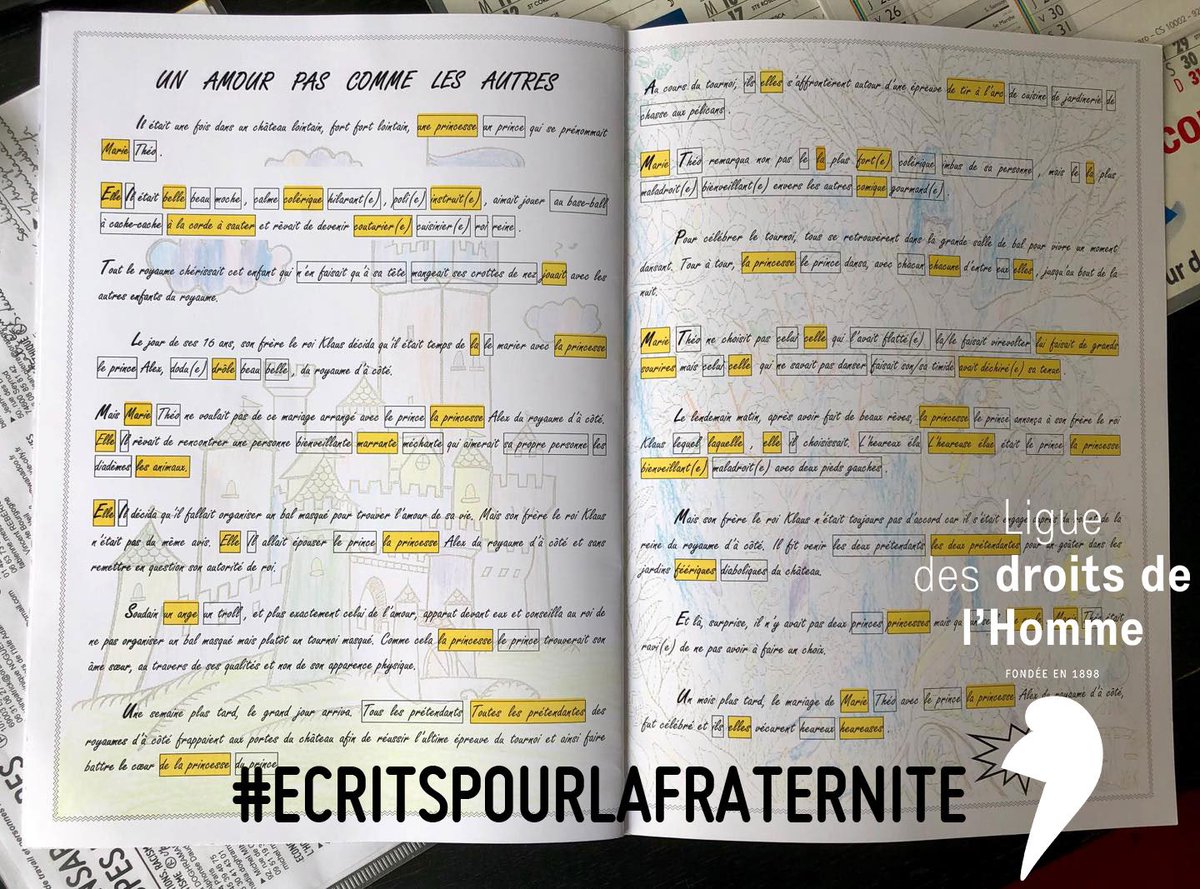 UN AMOUR PAS COMME LES AUTRES
Il était une fois dans un château lointain, fort fort lointain, une princesse un prince qui se prénommait
Marie Théo.
Elle Il était belle beau moche, calme colérique hilarant(e), poli(e) instruit(e), aimait jouer au base-ball
à cache-cache à la corde à sauter et rêvait de devenir couturier(e) cuisinier(e) roi reine.
Tout le royaume chérissait cet enfant qui n'en faisait qu'à sa tête mangeait ses crottes de nez jouait avec les
autres enfants du royaume.
Le jour de ses 16 ans, son frère le roi Klaus décida qu'il était temps de la le marier avec la princesse
le prince Alex, dodu(e) drôle beau belle, du royaume d'à côté.
Mais Marie Théo ne voulait pas de ce mariage arrangé avec le prince la princesse Alex du royaume d'à côté.
Elle Il rêvait de rencontrer une personne bienveillante marrante méchante qui aimerait sa propre personne les
diadèmes les animaux.
Elle Il décida qu'il fallait organiser un bal masqué pour trouver l'amour de sa vie. Mais son frère le roi Klaus
n'était pas du même avis. Elle Il allait épouser le prince la princesse Alex du royaume d'à côté et sans
remettre en question son autorité de roi.
Soudain un ange un troll, et plus exactement celui de l'amour, apparut devant eux et conseilla au roi de
ne pas organiser un bal masqué mais plutôt un tournoi masqué. Comme cela la princesse le prince trouverait son
âme sœur, au travers de ses qualités et non de son apparence physique.
Une semaine plus tard, le grand jour arriva. Tous les prétendants Toutes les prétendantes des
royaumes d'à côté frappaient aux portes du château afin de réussir l'ultime épreuve du tournoi et ainsi faire
battre le cœur de la princesse du prince
Au cours du tournoi, ils elles s'affrontèrent autour d'une épreuve de tir à l'arc de cuisine de jardinerie de
chasse aux pélicans.
Marie Théo remarqua non pas le la plus fort(e) colérique imbus de sa personne, mais le la plus
maladroit(e) bienveillant(e) envers les autres comique gourmand(e).
Pour célébrer le tournoi, tous se retrouvèrent dans la grande salle de bal pour vivre un moment
dansant. Tour à tour, la princesse le prince dansa, avec chacun chacune d'entre eux elles, jusqu'au bout de la
nuit.
Marie Théo ne choisit pas celui celle qui l'avait flatté(e) la/le faisait virevolter lui faisait de grands
sourires mais celui celle qui ne savait pas danser faisait son/sa timide avait déchiré(e) sa tenue
Le lendemain matin, après avoir fait de beaux rêves, la princesse le prince annonça à son frère le roi
Klaus lequel laquelle, elle il choisissait. L'heureux élu L'heureuse élue était le prince la princesse
bienveillant(e) maladroit(e) avec deux pieds gauches.
Mais son frère le roi Klaus n'était toujours pas d'accord car il s'était engagé auprès du roi de la
reine du royaume d'à côté. Il fit venir les deux prétendants les deux prétendantes pour un goûter dans les
jardins féériques diaboliques du château.
Et là, surprise, il n'y avait pas deux princes princesses mais
ravi(e) de ne pas avoir à faire un choix.
Un mois plus tard, le mariage de Marie Théo avec le prince la princesse Alex du royaume d'à côté,
fut célébré et ils elles vécurent heureux heureuses.
Ligue
des droits de
l'Homme
FONDÉE EN 1898
#ECRITSPOURLAFRATERNITE